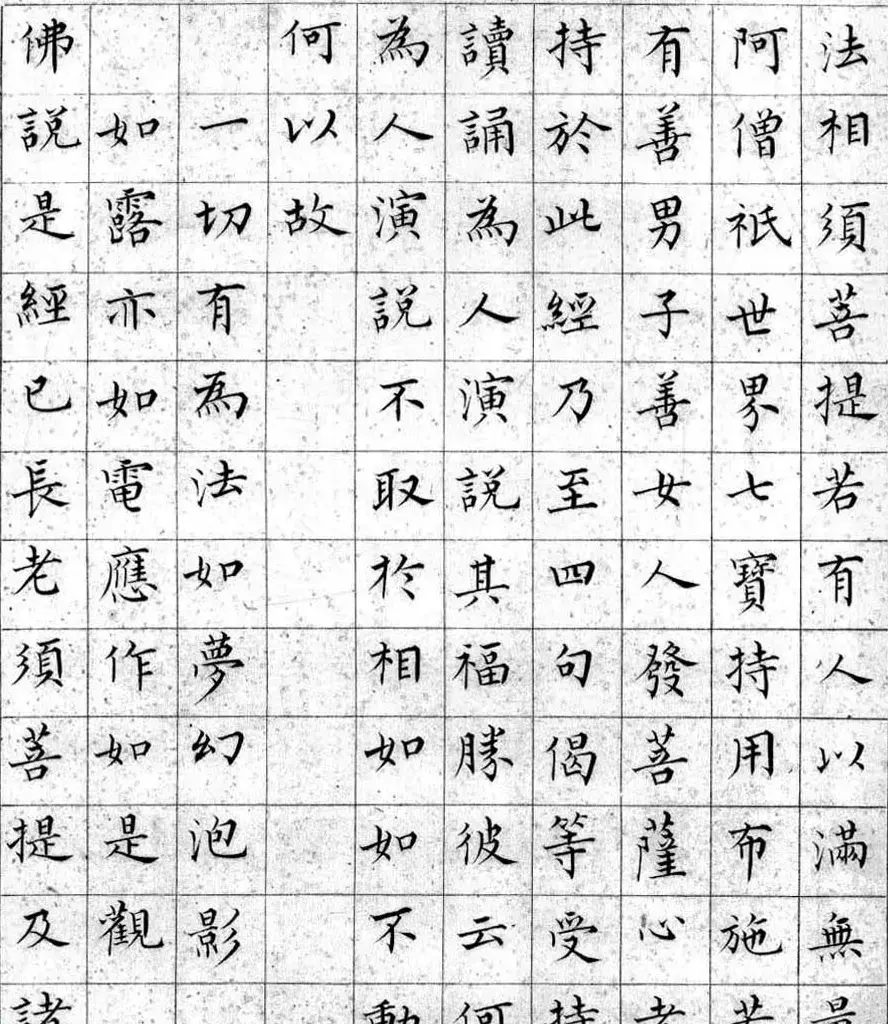 法相須菩提若有人以滿無
阿僧祇世界七寶持用布施若
有善男子善女人發菩薩心者
持於此經乃至四句偈等受持
讀誦為人演說其福勝彼云何
為人演說不取於相如如不動
何以故
一切有為法如夢幻泡影
如露亦如電應作如是觀
佛說是經已長老須菩提及諸